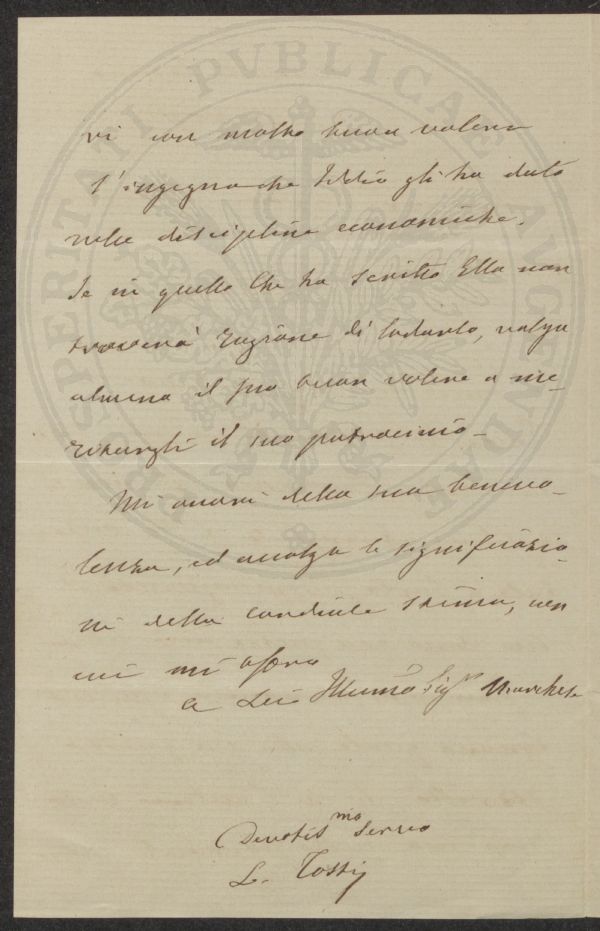 vi con molto buon volere
l'ingegno che Iddio gli ha dato
nelle discipline economiche.
Se in quello che ha scritto Ella non
troverà ragione di lodarlo, valga
almeno il suo buon volere a me-
ritargli il suo patrocinio.
Mi onori della sua benevo-
lenza, ed accolga le significazio-
ni della cordiale stima, con
cui mi offero
a Lei Illmo Sigr Marchese
Devotismo Servo
L. Tosti
PROSPERITATI PVBLICAE AVGENDAE